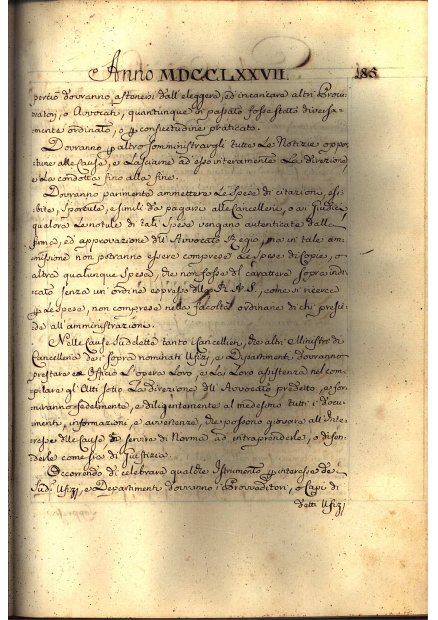 Anno MDCCLXXVII. 185
dovranno astenersi dall'eleggere, ed incaricare altri Procu-
ratori, o Avvocati, quantunque in passato fosse stato diversa-
mente ordinato, o p consuetudine praticato.
Dovranno p altro somministrargli tutte le Notizie oppor-
tune alle Cause, e lasciarne ad esso interamente la direzione,
e la condotta fino alla fine.
Dovranno parimente ammettere le spese di citazioni, esi-
bite, sportule, e simili da pagarsi alle Cancellerie, o ai Giudici
qualora le notule di tali spese vengano autenticate dalla
firma, ed approvazione dell'Avvocato Regio, ma in tale am-
missione non potranno essere comprese le spese di Copie, o
altra qualunque spesa, che non fosse del carattere sopra indi-
cato senza un'ordine espresso di S. A. R., come si ricerca
p le spese, non comprese nella facoltà ordinaria di chi presie-
de all'amministrazione.
Nelle Cause suddette tanto i Cancellieri, che altri Ministri di
Cancelleria dei sopra nominati Ufizj, e Dipartimenti dovranno
prestare ex Officio l'opera loro, e la loro assistenza nel com-
pilare gli Atti sotto la direzione dell'Avvocato predetto, e som-
ministreranno fedelmente, e diligentemente al medesimo tutti i docu-
menti, informazioni, e avvertenze, che possono giovare all'Inte-
resse delle Cause e servire di Norma ad intraprenderle, o difen-
derle come sia di Giustizia.
Occorrendo di celebrare qualche Istrumento p interesse de'
Sudd. Ufizj, e Dipartimenti dovranno i Provveditori, o Capi di
detti Ufizj